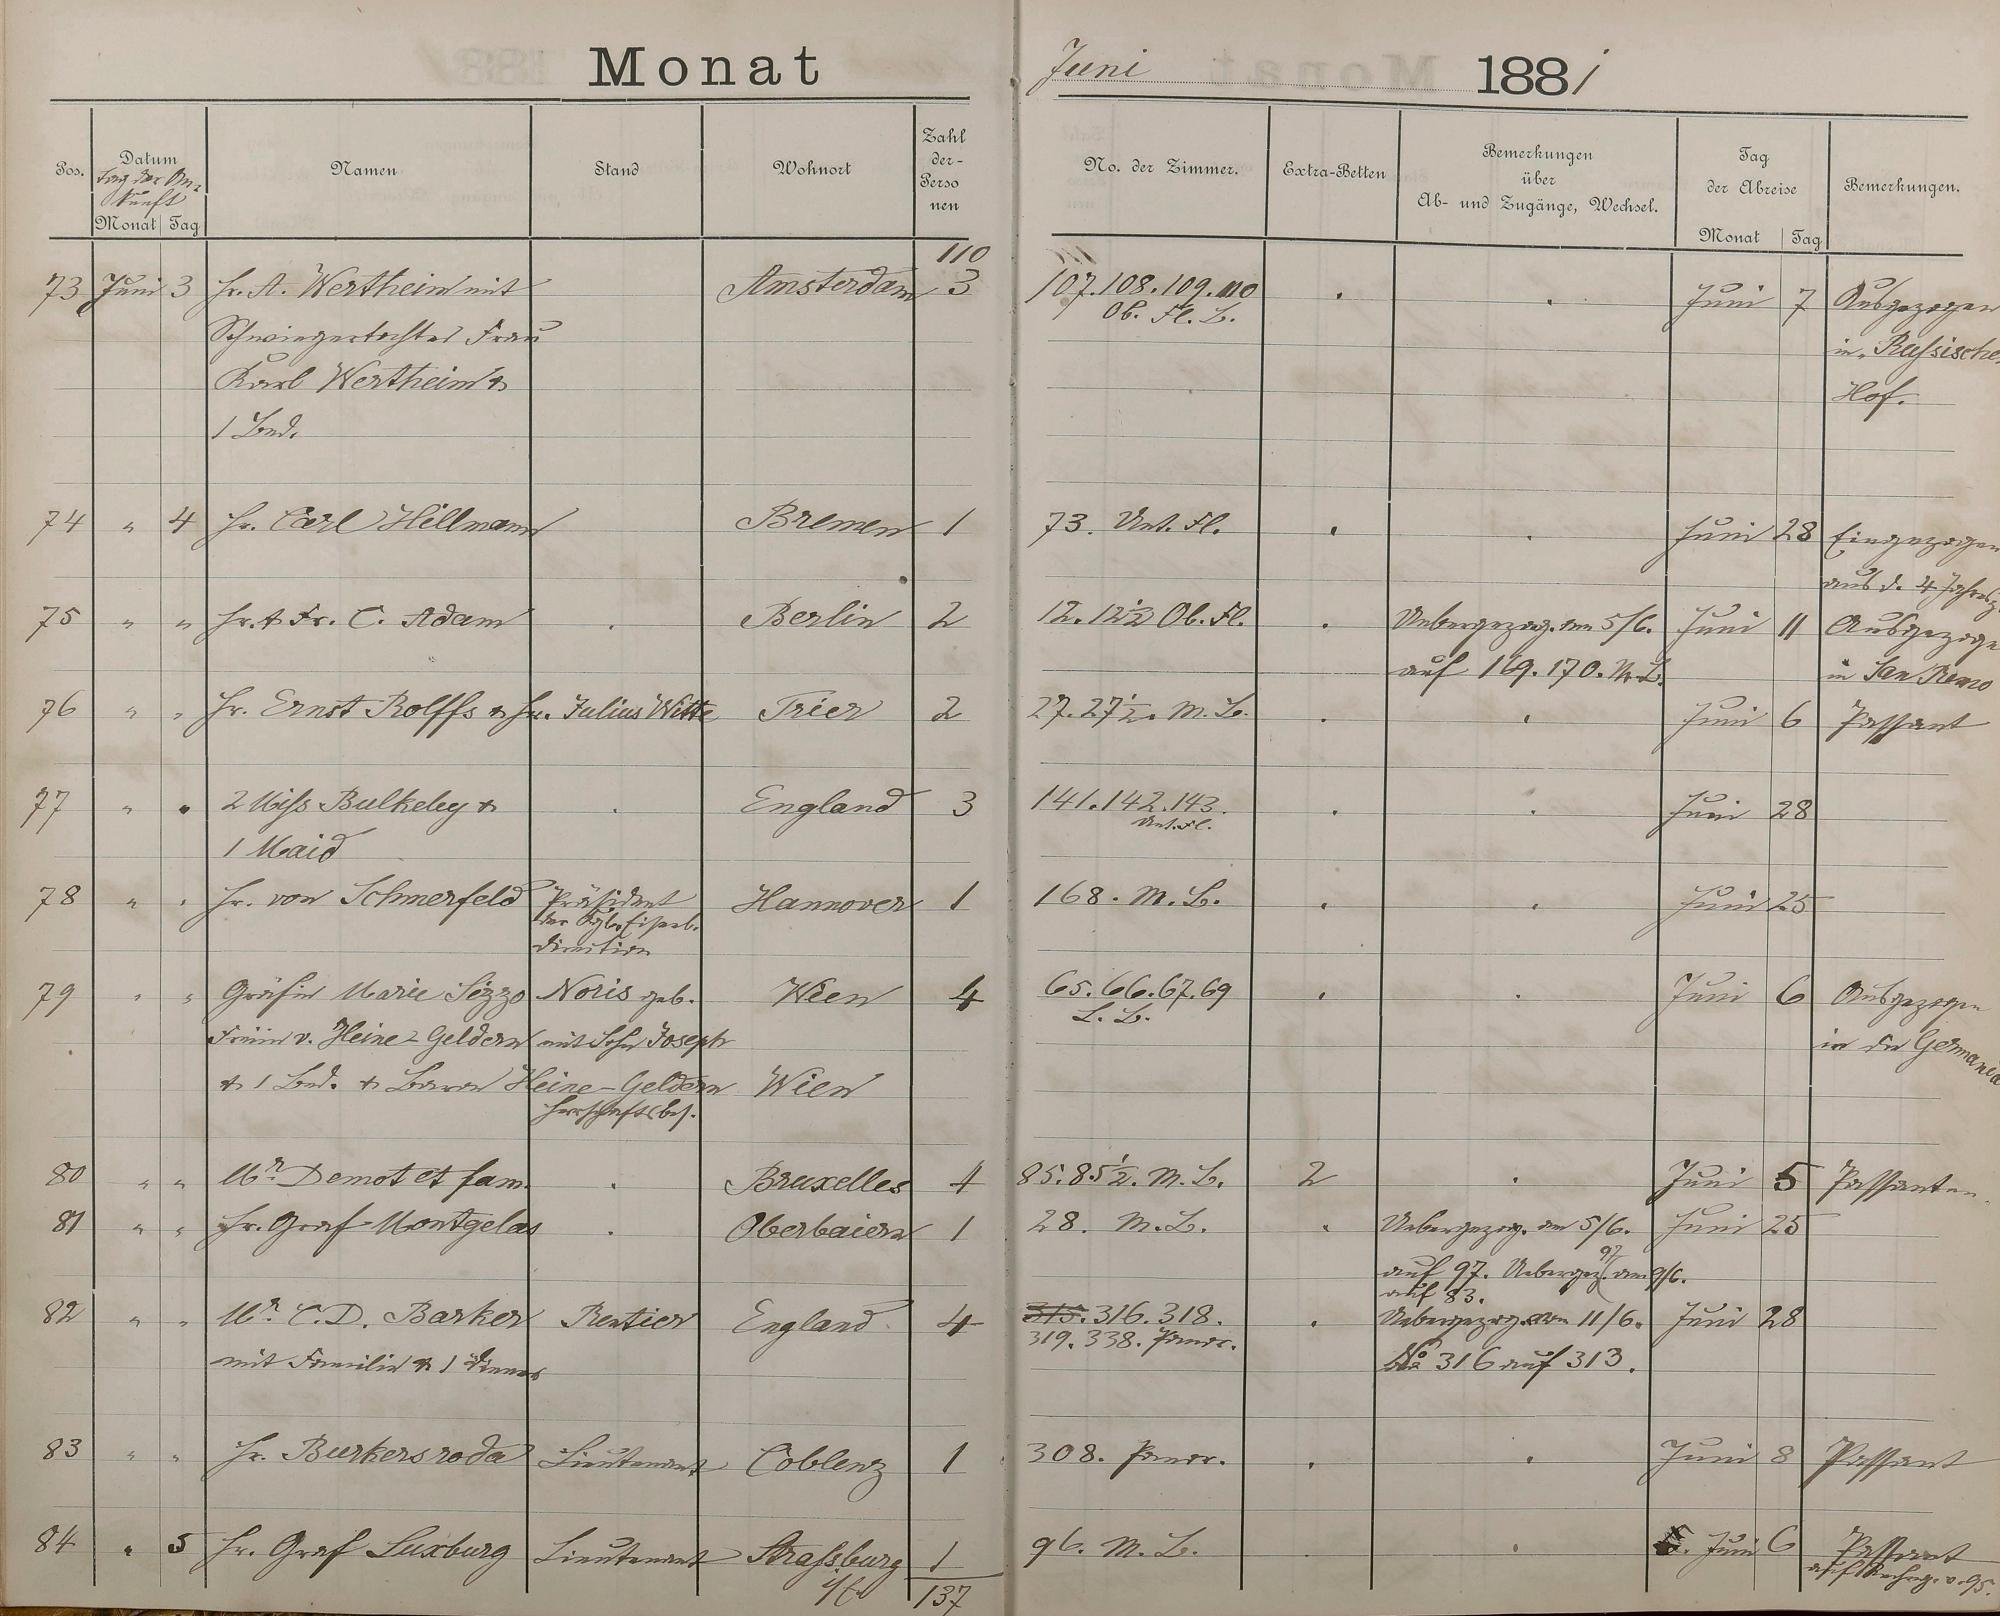 Monat Juni 1881
Pos. Datum Tag der An-kunft Monat Tag Namen Stand Wohnort Zahl der-Perso nen No. der Zimmer. Extra-Betten Bemerkungen über Ab- und Zugänge, Wechsel. Tag der Abreise Monat Tag Bemerkungen.
110
73 Juni 3 Hr. A. Wertheim mit Amsterdam 3 107.108.109.110 . . Juni 7 Ausgezogen
Schwiegertochter Frau Ob. Fl. L. in Russische
Karl Wertheim & Hof.
1 Bed.
74 " 4 Hr. Carl Hillmann Bremen 1 73. Unt. Fl. . . Juni 28 Eingezogen
aus d. 4 Jahresz.
75 " " Hr. & Fr. C. Adam . Berlin 2 12.12½ Ob. Fl. . Uebergezog. am 5/6. Juni 11 Ausgezoge
auf 169.170. M.L. in San Remo
76 " " Hr. Ernst Rolffs & Hr. Julius Witte Trier 2 27.27½. M.L. . . Juni 6 Passant
77 " " 2 Miss Bulkeley & . England 3 141.142.143. . . Juni 28
1 Maid Unt. Fl.
78 " " Hr. von Schmerfeld Präsident Hannover 1 168. M.L. . . Juni 25
der Kgl. Eisenb.
direction
79 " " Gräfin Marie Sizzo Noris geb. Wien 4 65.66.67.69 . . Juni 6 Ausgezogen
Freiin v. Heine-Geldern mit Sohn Joseph L. L. in die Germania
& 1 Bed. & Baron Heine-Geldern Wien
Herrschaftsbes.
80 " " Mr. Demot et fam. . Bruxelles 4 85.85½. M.L. 2 . Juni 5 Passanten.
81 " " Hr. Graf Montgelas . Oberbaiern 1 28. M.L. . Uebergezog. am 5/6. Juni 25
auf 97. Uebergez. 97 am 9/6.
auf 83.
82 " " Mr. C.D. Barker Rentier England 4 315.316.318. . Uebergezog. am 11/6. Juni 28
mit Familie & 1 Diener 319.338. No 316 auf 313.
83 " " Hr. Burkersroda Lieutenant Coblenz 1 308. . . Juni 8 Passant
84 " 5 Hr. Graf Luxburg Lieutenant Strassburg 1 96. M.L. . . 5. Juni 6 Passant
i/E 137 auf Rechng. v. 95.